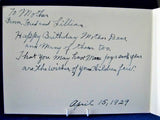 To Mother
From Fred and Lillian
Happy Birthday Mother Dear
and Many of them Too
That you may have Many Joys each year
are the wishes of your children fair.
April 15, 1929